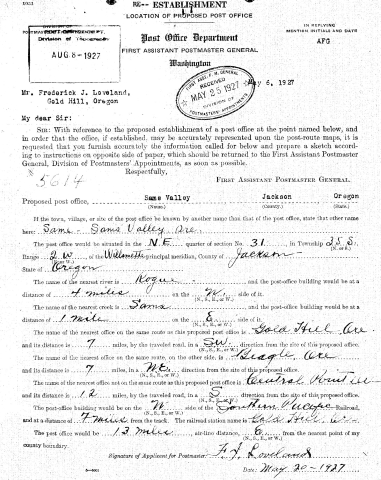 RE-- ESTABLISHMENT
LOCATION OF PROPOSED POST OFFICE
Post Office Department
FIRST ASSISTANT POSTMASTER GENERAL
Washington
IN REPLYING
MENTION INITIALS AND DATE
AFG
AUG -8 -1927
FIRST ASST. P. M. GENERAL
RECEIVED
MAY 25 1927
DIVISION OF
POSTMASTERS' APPOINTMENTS
May 6, 1927
Mr. Frederick J. Loveland,
Gold Hill, Oregon
My dear Sir:
SIR: With reference to the proposed establishment of a post office at the point named below, and
in order that the office, if established, may be accurately represented upon the post-route maps, it is
requested that you furnish accurately the information called for below and prepare a sketch accord-
ing to instructions on opposite side of paper, which should be returned to the First Assistant Postmaster
General, Division of Postmasters' Appointments, as soon as possible.
Respectfully,
FIRST ASSISTANT POSTMASTER GENERAL.
5614
Proposed post office, Sams Valley Jackson Oregon
(Name) (County) (State)
If the town, village, or site of the post office be known by another name than that of the post office, state that other name
here: Same - Sams Valley Ore.
The post office would be situated in the N.E. quarter of section No. 31, in Township
Range 2 W, of the Willamette principal meridian, County of Jackson
State of Oregon
The name of the nearest river is Rogue, and the post-office building would be at a
distance of 4 miles on the W. side of it.
(N., S., E., or W.)
The name of the nearest creek is Sams, and the post-office building would be at a
distance of 1 mile on the E side of it.
(N., S., E., or W.)
The name of the nearest office on the same route as this proposed post office is Gold Hill Ore
and its distance is 7 miles, by the traveled road, in a SW. direction from the site of this proposed office.
(N., S., E., or W.)
The name of the nearest office on the same route, on the other side, is Beagle Ore
and its distance is 7 miles, in a NE. direction from the site of this proposed office.
(N., S., E., or W.)
The name of the nearest office not on the same route as this proposed post office is Central Point
and its distance is 12 miles, by the traveled road, in a S direction from the site of this proposed office.
(N., S., E., or W.)
The post-office building would be on the W side of the Southern Pacific Railroad,
and at a distance of 7 miles from the track. The railroad station name is Gold Hill,
The post office would be 13 miles, air-line distance, from the nearest point of my
county boundary.
(N., S., E., or W.)
Signature of Applicant for Postmaster F J Loveland
Date: May 20-1927